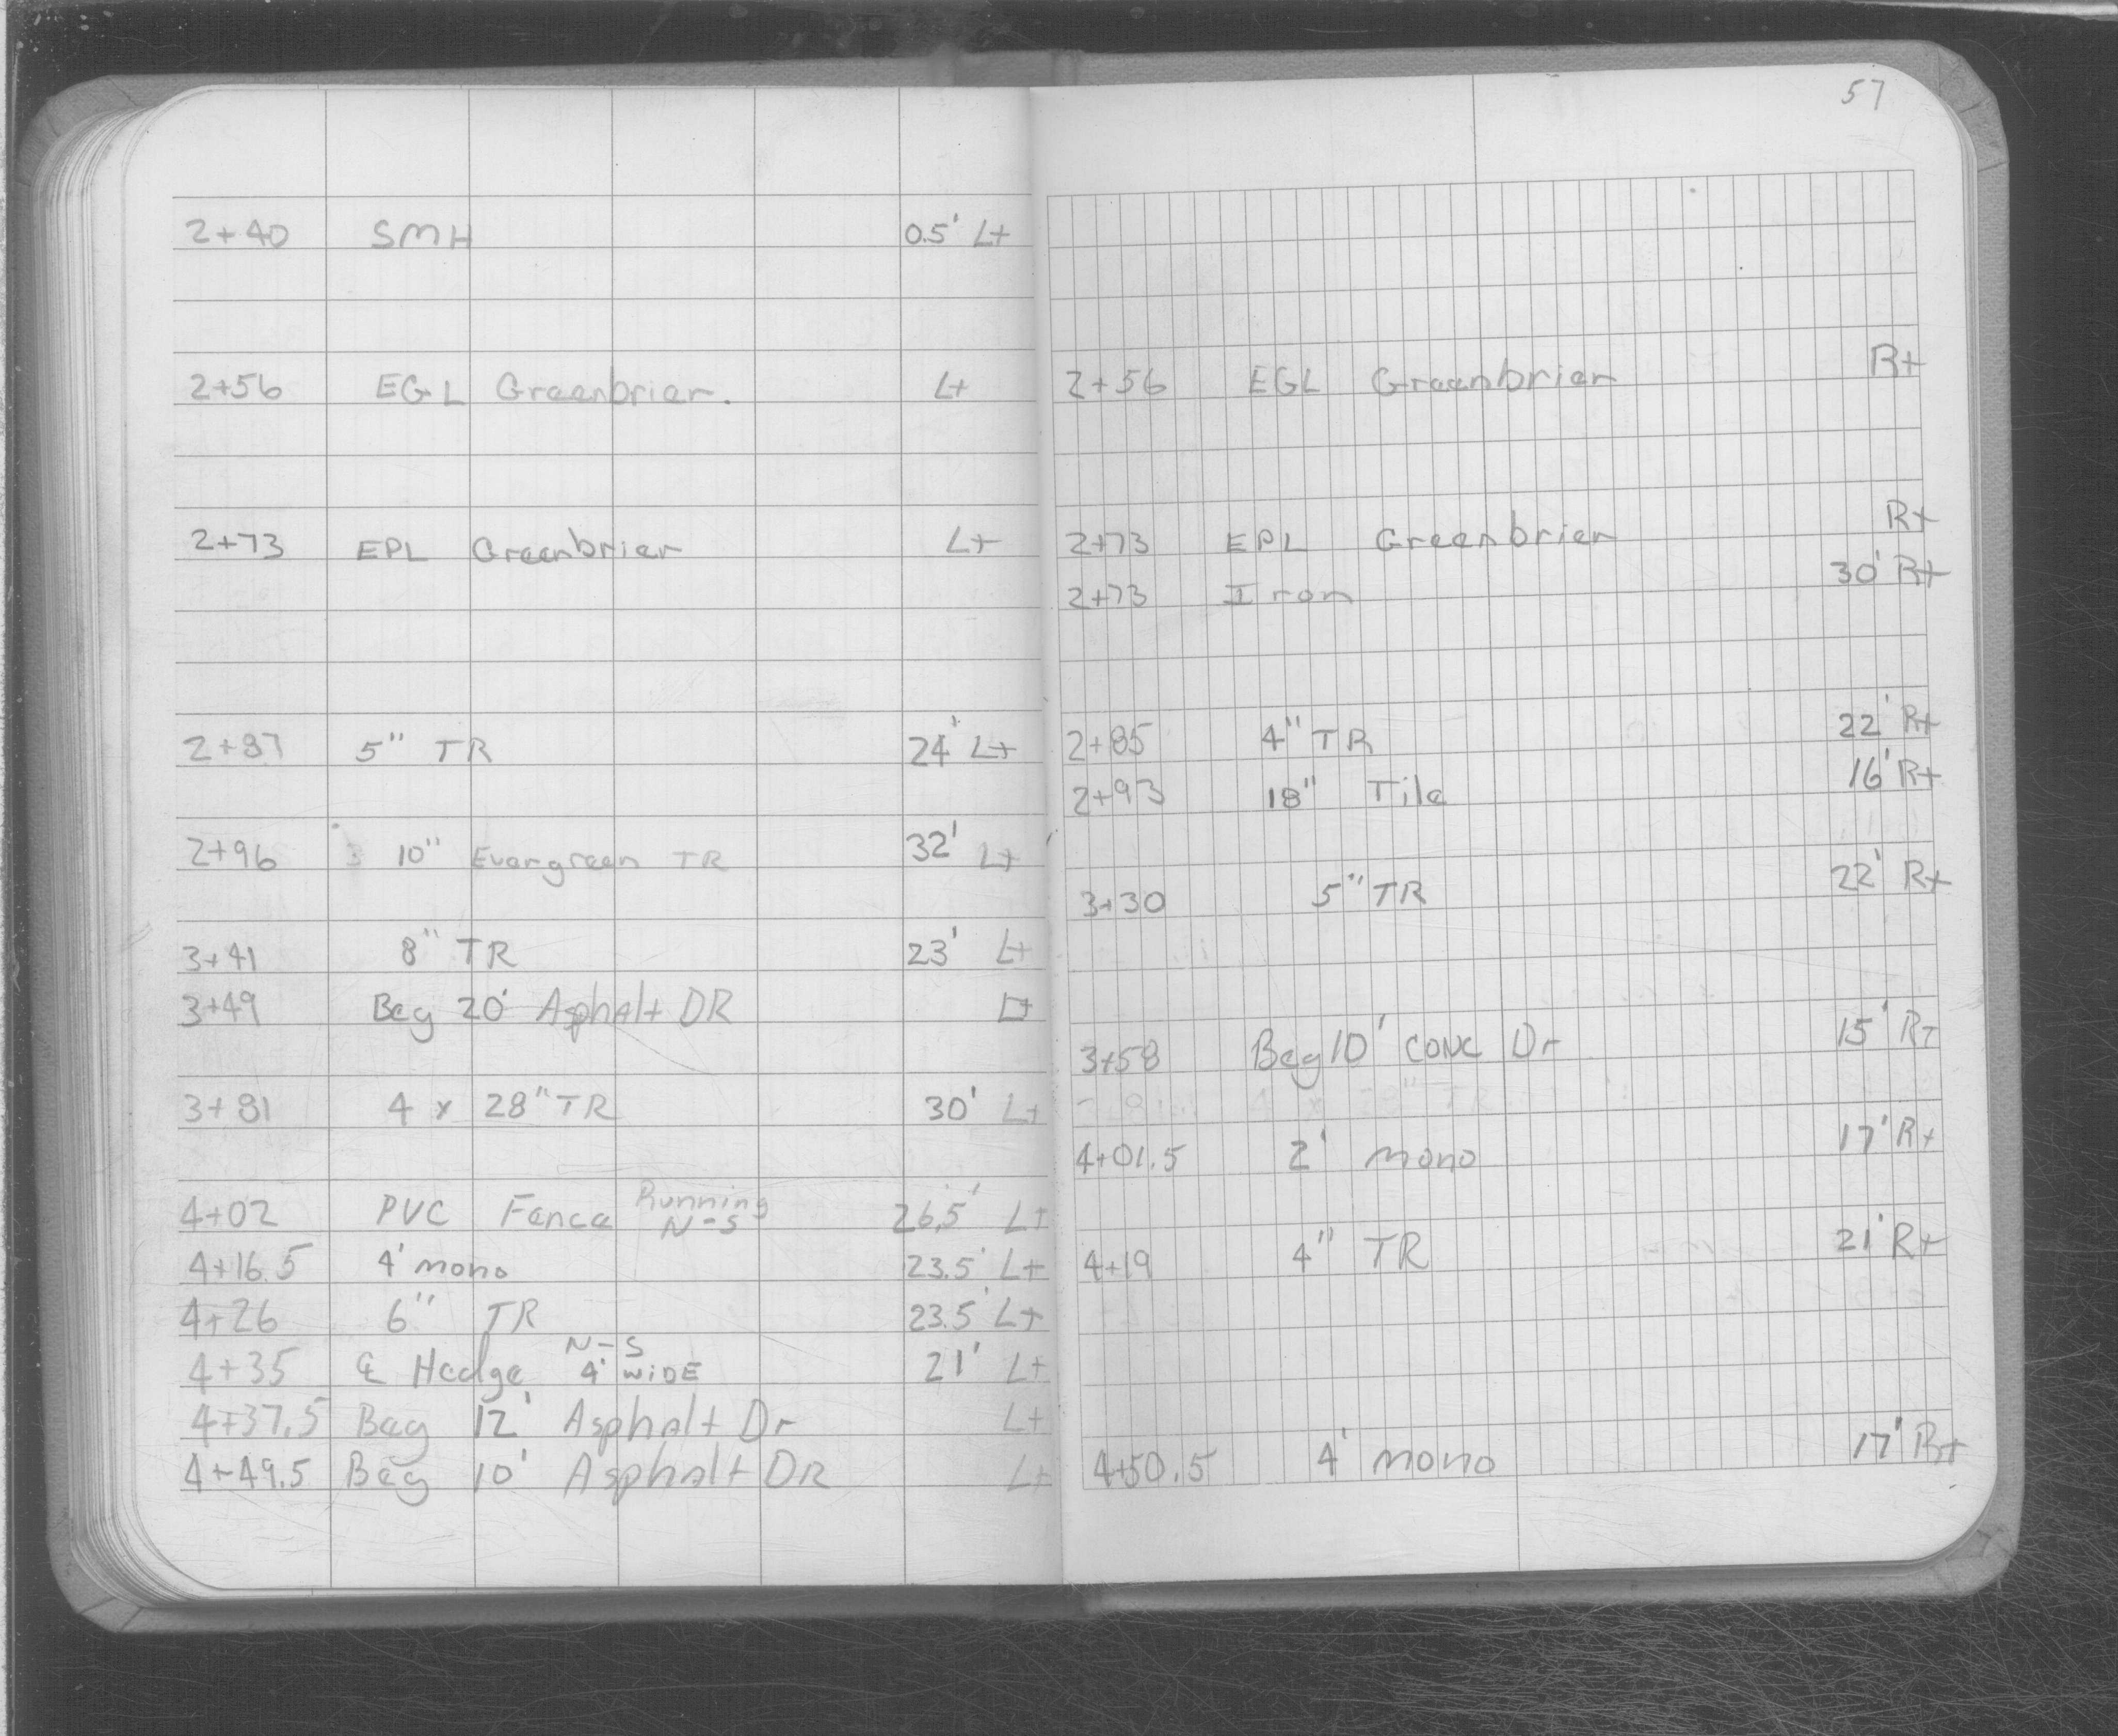 2+40 SMH 0.5' Lt
2+56 EGL Greenbrier. Lt
2+73 EPL Greenbrier Lt
2+87 5" TR 24' Lt
2+96 10" Evergreen TR 32' Lt
3+41 8" TR 23' Lt
3+49 Beg 20' Asphalt DR Lt
3+81 4 x 28" TR 30' Lt
4+02 PVC Fence Running N-S 26.5' Lt
4+16.5 4' mono 23.5' Lt
4+26 6" TR 23.5' Lt
4+35 ℄ Hedge N-S 4' WiDE 21' Lt
4+37.5 Beg 12' Asphalt Dr Lt
4+49.5 Beg 10' Asphalt DR Lt
57
2+56 EGL Greenbrier Rt
2+73 EPL Greenbrier Rt
2+73 Iron 30' Rt
2+85 4" TR 22' Rt
2+93 18" Tile 16' Rt
3+30 5" TR 22' Rt
3+58 Beg 10' CONC Dr 15' Rt
4+01.5 2' mono 17' Rt
4+19 4" TR 21' Rt
4+50.5 4' mono 17' Rt